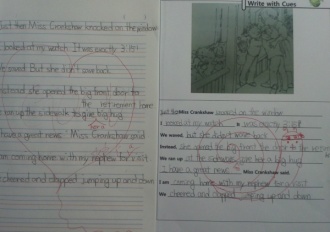 Just then Miss Crankshaw knocked on the window
looked at my watch. It was exactly 3
waved. But she didn't wave back
instead she opened the big front door to
the retirement home
ran up the sidewalk to give big hug
have a great news Miss Crankshaw said
am coming home with my nephew for a visit
cheered and clapped jumping up and down
Write with Cues
just then Miss Crankshaw knocked on the window
I looked at my watch. It was exactly
We waved. but she didn't wave back
Instead, she opened the big front the door to the
We ran up at the sidewalk her for a big hug
I have a great news Miss Crankshaw said.
I am coming home with my nephew for a visit
We cheered and clapped jumping up and down